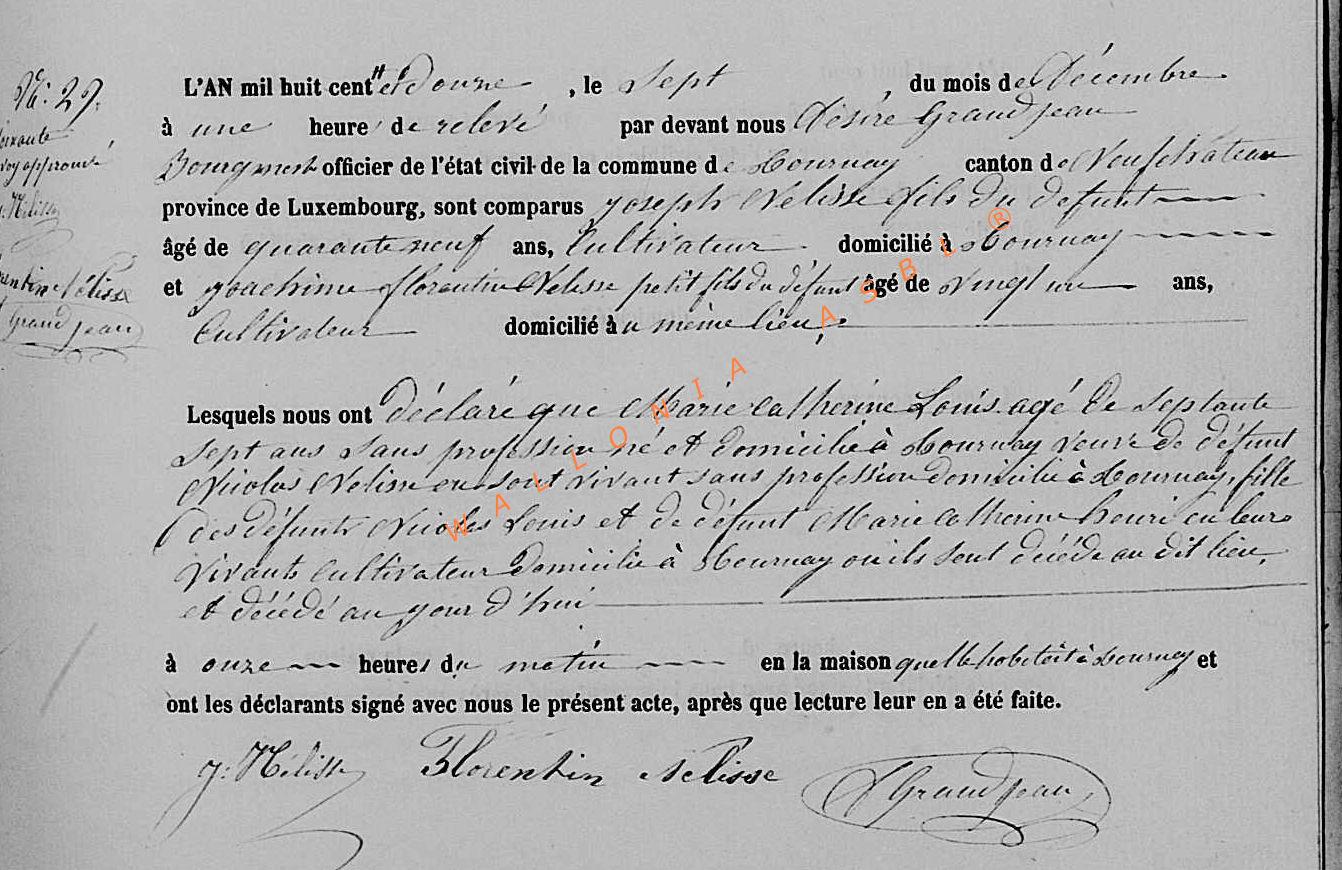 N° 29.
L'AN mil huit cent et Douze, le Sept du mois de Décembre
à une heure de relevé par devant nous Désiré Grandjean
Bourgmest officier de l'état civil de la commune de Tournay canton de Neufchateau
province de Luxembourg, sont comparus Joseph Nelisse fils du defunt
âgé de quarante neuf ans, Cultivateur domicilié à Tournay
et Joachime florentin Nelisse petit fils du défunt âgé de vingt un ans,
Cultivateur domicilié àu même lieu,
Lesquels nous ont déclaré que Marie Catherine Louis agé de Septante
Sept ans sans profession né et domicilié à Tournay veuve de défunt
Nicolas Nelisse en sont vivant sans profession domicilié à Tournay, fille
des défunts Nicolas Louis et de défunt Marie Catherine henri en leurs
vivants Cultivateur domicilié à Tournay ou ils sont décédé au dit lieu,
et décédé au jour d'hui
à onze heures du matin en la maison quelle habitoit à Tournay et
ont les déclarants signé avec nous le présent acte, après que lecture leur en a été faite.
J: Nélisse Florentin Nelisse D Grandjean
WALLONIA ASBL ®